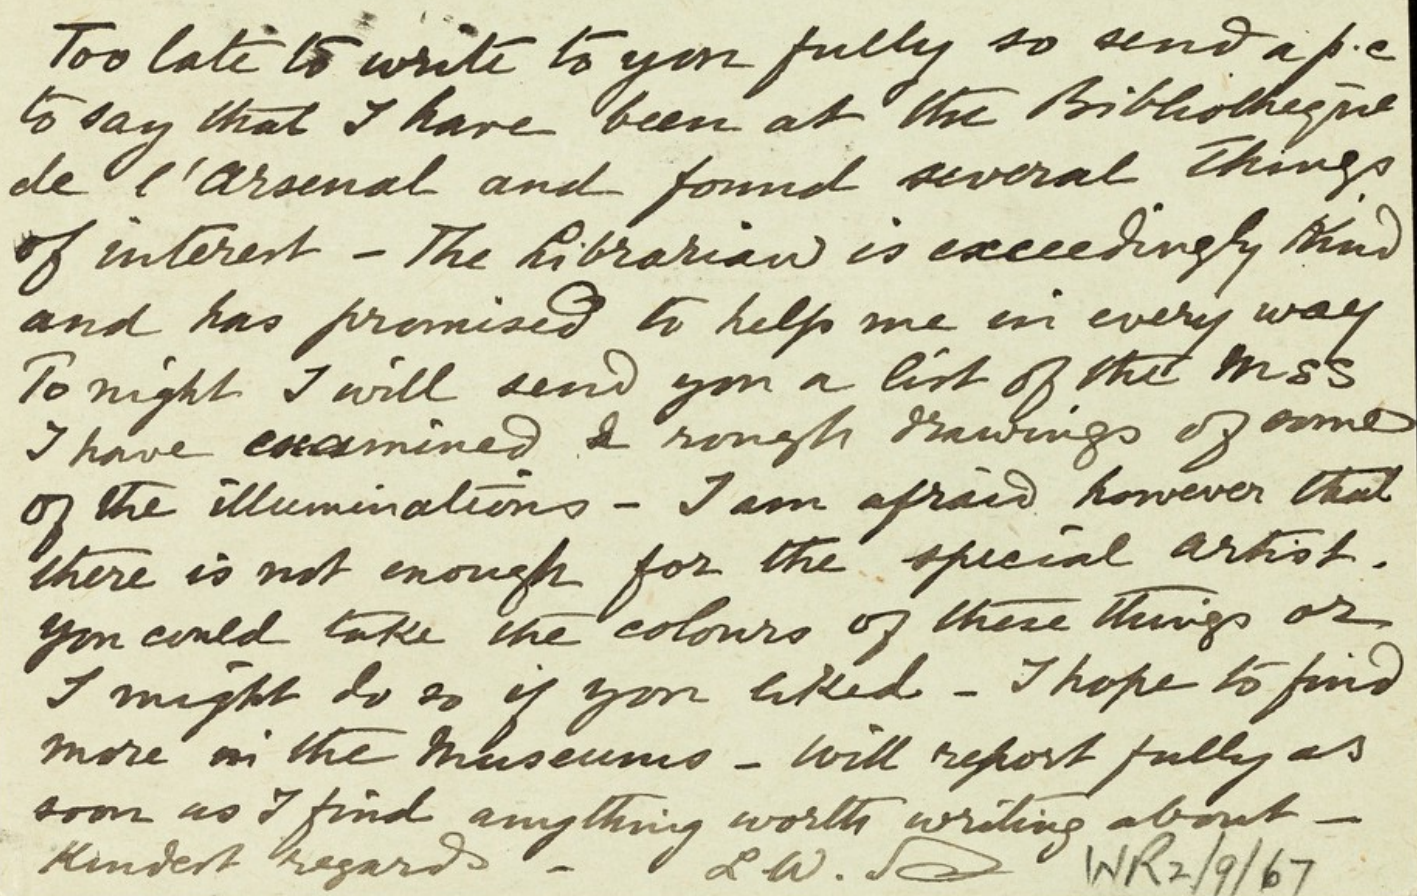 Too late to write to you fully so send a p.c
to say that I have been at the Bibliotheque
de l'Arsenal and found several things
of interest - The Librarian is exceedingly kind
and has promised to help me in every way
To night I will send you a list of the MSS
I have examined & rough drawings of some
of the illuminations - I am afraid however that
there is not enough for the special artist.
you could take the colours of these things or
I might do so if you liked - I hope to find
more in the Museums - will report fully as
soon as I find anything worth writing about -
Kindest regards - L.W.
WR2/9/67